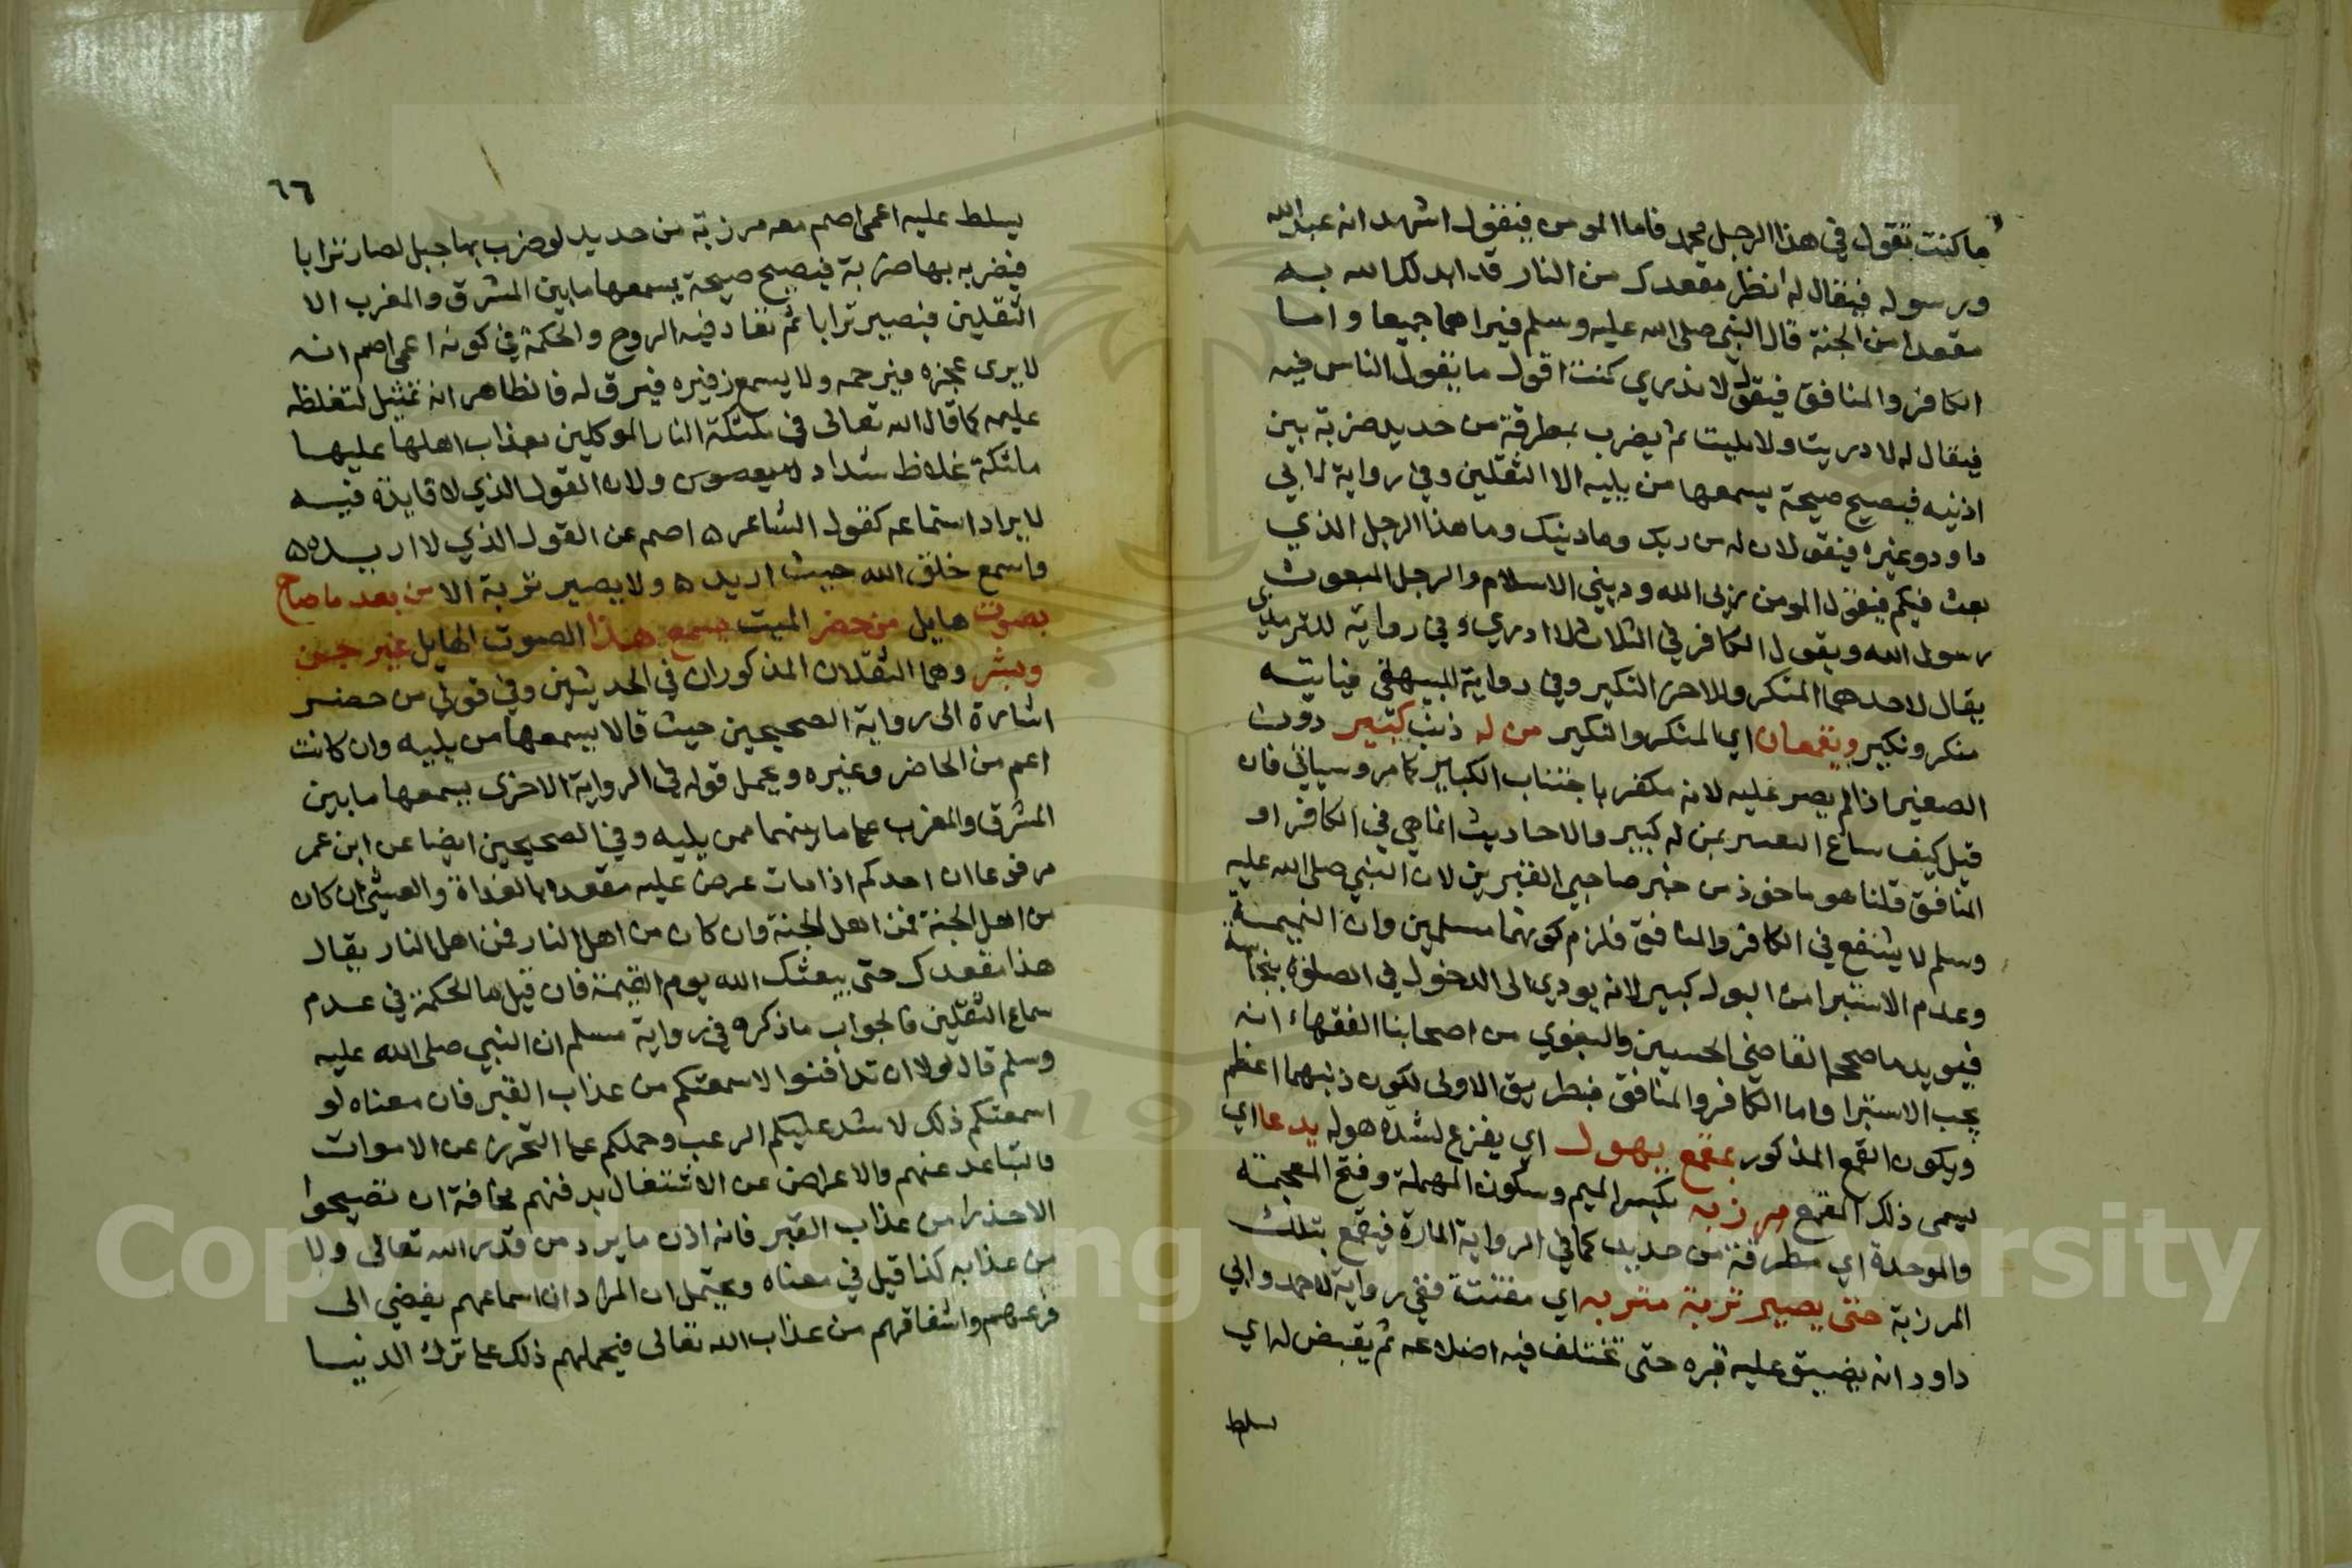 ما كنت تقول في هذا الرجل محمد فاما المومن فيقول اشهد انه عبد الله
ورسوله فيقال له انظر مقعدك من النار قد ابدلك الله به
مقعدا من الجنة قال النبي صلى الله عليه وسلم فيراهما جميعا واما
الكافر والمنافق فيقول لا ندري كنت اقول ما يقول الناس فيه
فيقال له لا دريت ولا تليت ثم يضرب بمطرقة من حديد ضربة بين
اذنيه فيصيح صيحة يسمعها من يليه الا الثقلين وفي رواية لابي
داود وغيره فيقولان له من ربك وما دينك وما هذا الرجل الذي
بعث فيكم فيقول المومن ربي الله وديني الاسلام والرجل المبعوث
رسول الله ويقول الكافر في الثلاث لا ادري وفي رواية للترمذي
يقال لاحدهما المنكر وللاخر النكير وفي رواية للبيهقي فياتيه
منكر ونكير ويقمعان اي المنكر والنكير من له ذنب كبير دون
الصغير اذا لم يصر عليه لانه مكفر باجتناب الكباير كما مر وسياتي فان
قيل كيف ساغ التعبير بمن له كبير والاحاديث انما هي في الكافر او
المنافق قلنا هو ماخوذ من خبر صاحبي القبرين لان النبي صلى الله عليه
وسلم لا يشفع في الكافر والمنافق فلزم كونهما مسلمين وان النميمة
وعدم الاستبرا من البول كبير لانه يودي الى الدخول في الصلوة بنجاسة
فيويد ما صححه القاضي الحسين والبغوي من اصحابنا الفقهاء انه
يجب الاستبرا واما الكافر والمنافق فبطريق الاولى لكون ذنبهما اعظم
ويكون القمع المذكور بمقمع يهول اي يفزع لشدة هوله يدعا اي
يسمى ذلك المقمع مرزبه بكسر الميم وسكون المهملة وفتح المعجمة
والموحدة اي مطرقة من حديد كما في الرواية المارة فيقمع بتلك
المرزبة حتى يصير تربة متربه اي مفتتة ففي رواية لاحمد وابي
داود انه يضيق عليه قبره حتى تختلف فيه اضلاعه ثم يقيض له اي
سلط
٦٦
يسلط عليه اعمى اصم معه مرزبة من حديد لو ضرب بها جبل لصار ترابا
فيضربه بها ضربة فيصيح صيحة يسمعها ما بين المشرق والمغرب الا
الثقلين فيصير ترابا ثم تعاد فيه الروح والحكمة في كونه اعمى اصم انه
لا يرى عجزه فيرحمه ولا يسمع زفيره فيرق له فالظاهر انه تمثيل لتغلظه
عليه كما قال الله تعالى في ملئكة النار الموكلين بعذاب اهلها عليها
ملئكة غلاظ شداد لا يعصون ولان القول الذي لا فايدة فيه
لا يراد استماعه كقول الشاعر ه اصم عن القول الذي لا اريده ه
واسمع خلق الله حيث اريد ه ولا يصير تربة الا من بعد ما صاح
بصوت هايل من حضر الميت يسمع هذا الصوت الهايل غير جن
وبشر وهما الثقلان المذكوران في الحديثين وفي قولي من حضر
اشارة الى رواية الصحيحين حيث قالا يسمعها من يليه وان كانت
اعم من الحاضر وغيره ويحمل قوله في الرواية الاخرى يسمعها ما بين
المشرق والمغرب على ما بينهما ممن يليه وفي الصحيحين ايضا عن ابن عمر
مرفوعا ان احدكم اذا مات عرض عليه مقعده بالغداة والعشي ان كان
من اهل الجنة فمن اهل الجنة وان كان من اهل النار فمن اهل النار يقال
هذا مقعدك حتى يبعثك الله يوم القيمة فان قيل ما الحكمة في عدم
سماع الثقلين فالجواب ما ذكره في رواية مسلم ان النبي صلى الله عليه
وسلم قال لولا ان تدافنوا لاسمعتكم من عذاب القبر فان معناه لو
اسمعتكم ذلك لاشتد عليكم الرعب وحملكم على التحرز عن الاموات
والتباعد عنهم والاعراض عن الاشتغال بدفنهم مخافة ان تصيحوا
الاحذرا من عذاب القبر فانه اذن ما يرد من قدر الله تعالى ولا
من عذابه كذا قيل في معناه ويحتمل ان المراد ان اسماعهم يفضي الى
فزعهم واشفاقهم من عذاب الله تعالى فيحملهم ذلك على ترك الدنيا
Copyright © King Saud University